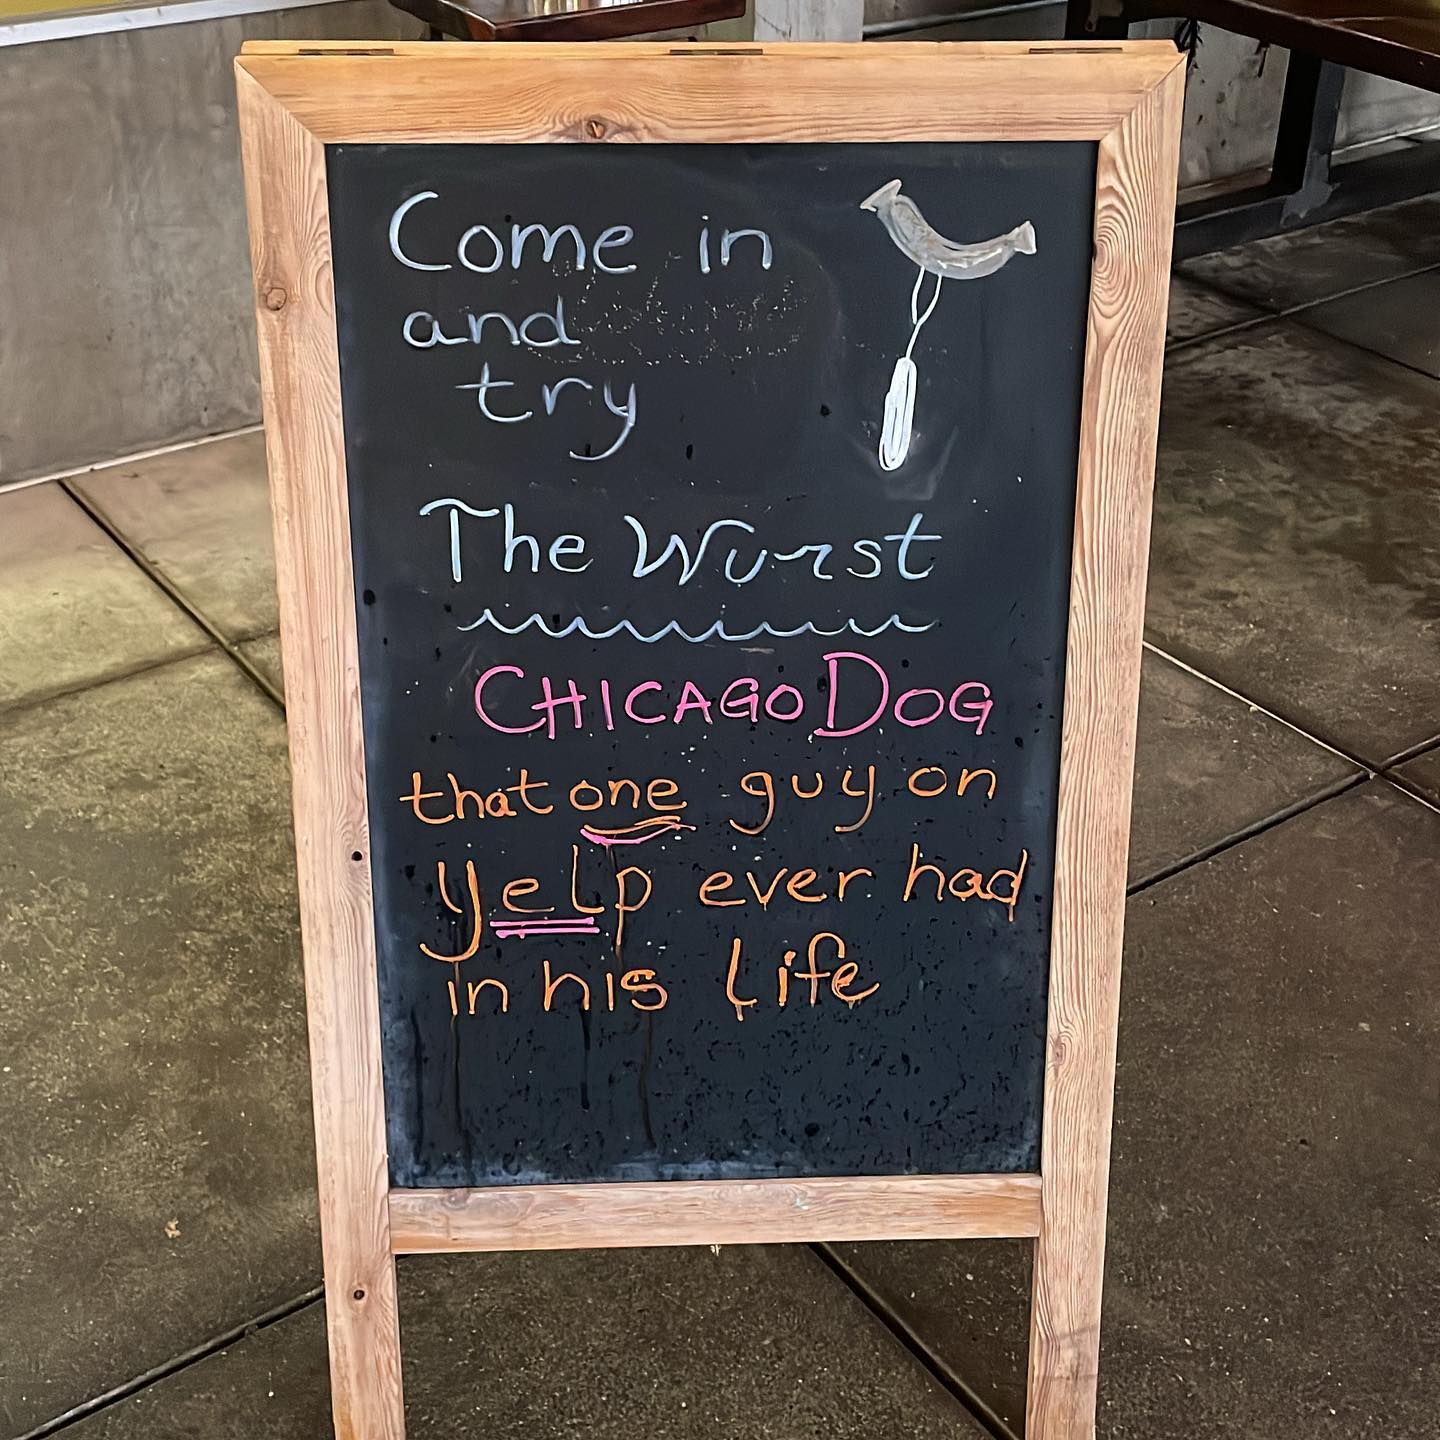 Come in
and
try
The Wurst
CHICAGO DOG
that one guy on
yelp ever had
in his life